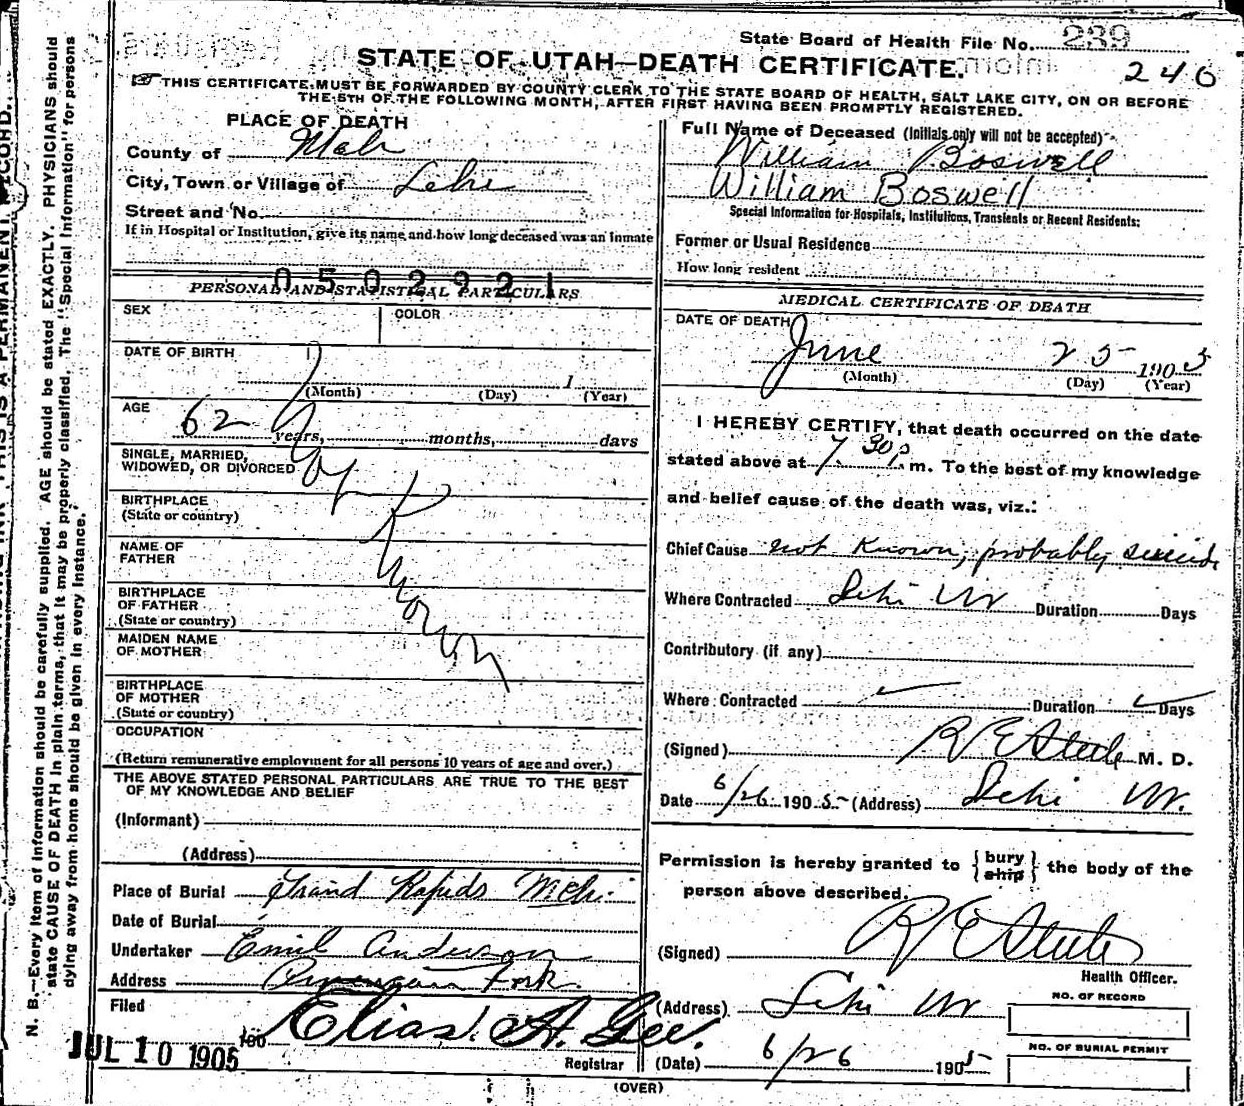 State Board of Health File No. 239
246
STATE OF UTAH—DEATH CERTIFICATE.
THIS CERTIFICATE MUST BE FORWARDED BY COUNTY CLERK TO THE STATE BOARD OF HEALTH, SALT LAKE CITY, ON OR BEFORE
THE 5TH OF THE FOLLOWING MONTH, AFTER FIRST HAVING BEEN PROMPTLY REGISTERED.
PLACE OF DEATH
County of Utah
City, Town or Village of Lehi
Street and No.
If in Hospital or Institution, give its name and how long deceased was an inmate
0502921
PERSONAL AND STATISTICAL PARTICULARS
SEX
COLOR
DATE OF BIRTH
(Month) (Day) 1 (Year)
AGE
62 years, months, days
SINGLE, MARRIED,
WIDOWED, OR DIVORCED
BIRTHPLACE
(State or country)
NAME OF
FATHER
BIRTHPLACE
OF FATHER
(State or country)
MAIDEN NAME
OF MOTHER
BIRTHPLACE
OF MOTHER
(State or country)
Not Known
OCCUPATION
(Return remunerative employment for all persons 10 years of age and over.)
THE ABOVE STATED PERSONAL PARTICULARS ARE TRUE TO THE BEST
OF MY KNOWLEDGE AND BELIEF
(Informant)
(Address)
Place of Burial Grand Rapids Mich.
Date of Burial
Undertaker Emil Anderson
Address American Fork.
Filed
JUL 10 1905 190 Elias A. Gee.
Registrar
Full Name of Deceased (Initials only will not be accepted)
William Boswell
William Boswell
Special Information for Hospitals, Institutions, Transients or Recent Residents:
Former or Usual Residence
How long resident
MEDICAL CERTIFICATE OF DEATH
DATE OF DEATH
June 25 1905
(Month) (Day) (Year)
I HEREBY CERTIFY, that death occurred on the date
stated above at 7.30 p. m. To the best of my knowledge
and belief cause of the death was, viz.:
Chief Cause not Known, probably suicide
Where Contracted Lehi Ut Duration Days
Contributory (if any)
Where Contracted Duration Days
(Signed) R E Steele M. D.
Date 6/26 1905 (Address) Lehi Ut.
Permission is hereby granted to { bury ship } the body of the
person above described.
(Signed) R E Steele
Health Officer.
(Address) Lehi Ut
NO. OF RECORD
NO. OF BURIAL PERMIT
(Date) 6/26 1905
(OVER)
N. B.—Every item of information should be carefully supplied. AGE should be stated EXACTLY. PHYSICIANS should
state CAUSE OF DEATH in plain terms, that it may be properly classified. The "Special Information" for persons
dying away from home should be given in every instance.
THIS IS A PERMANENT RECORD.